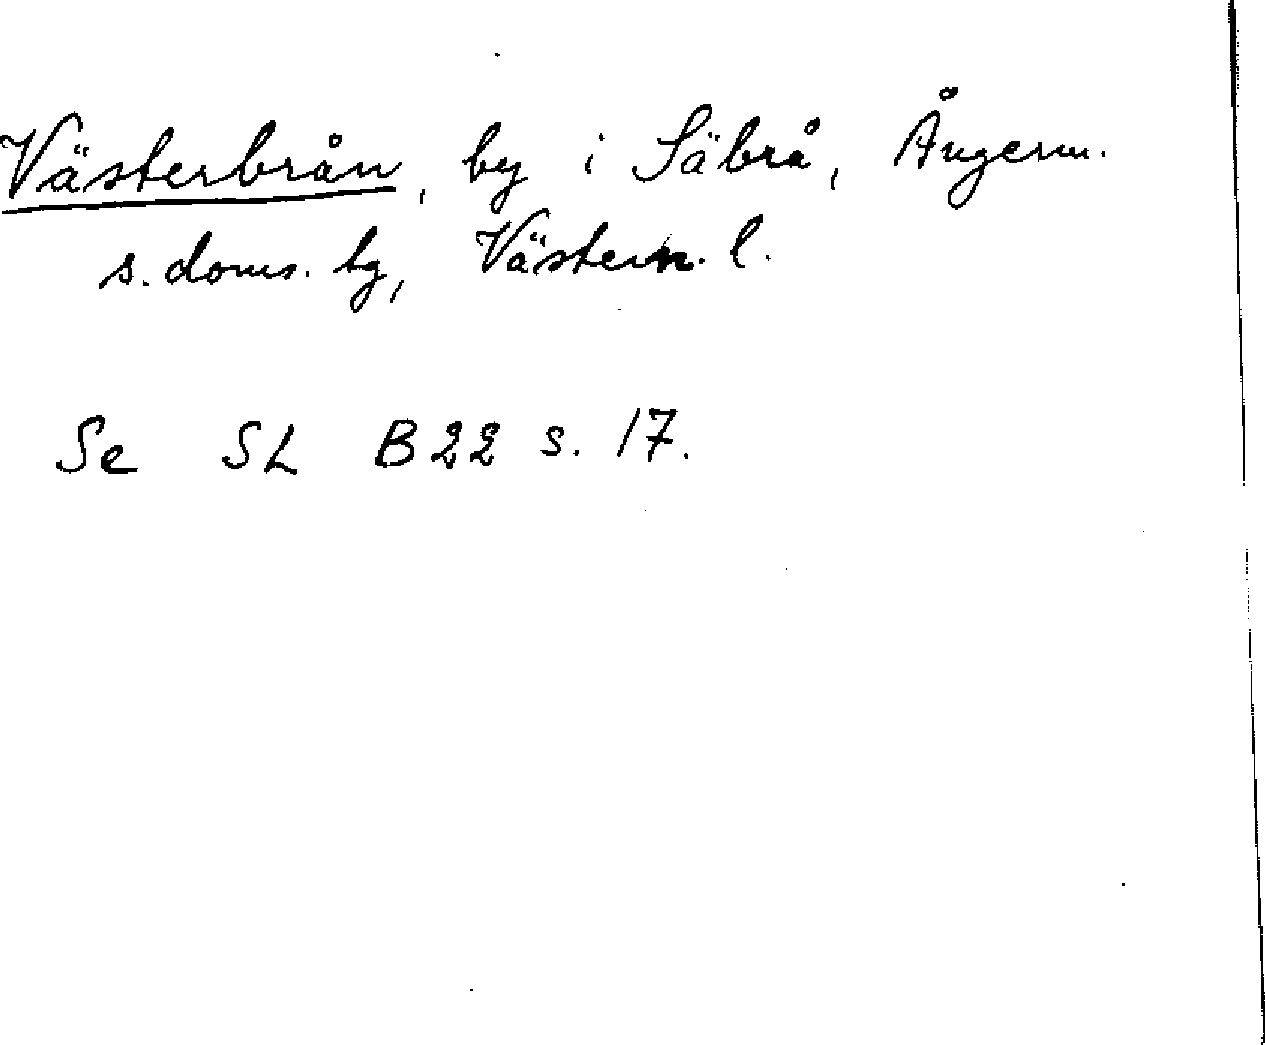 Västerbrån, by i Säbrå, Ångerm.
s. doms. tg, Västern. l.
Se SL B22 s. 17.